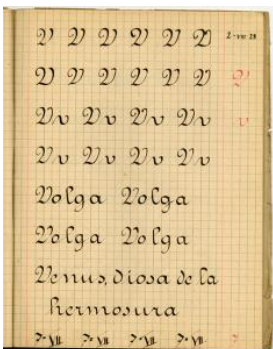 V V V V V V 2-VII-29
V V V V V V V
Vv Vv Vv Vv v
Vv Vv Vv Vv
Volga Volga
Volga Volga
Venus, diosa de la
hermosura